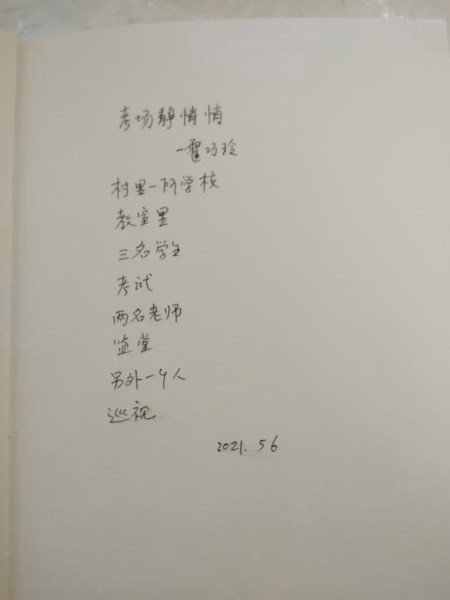 考场静悄悄
—霍巧玲
村里一所学校
教室里
三名学生
考试
两名老师
监堂
另外一个人
巡视
2021.5 6